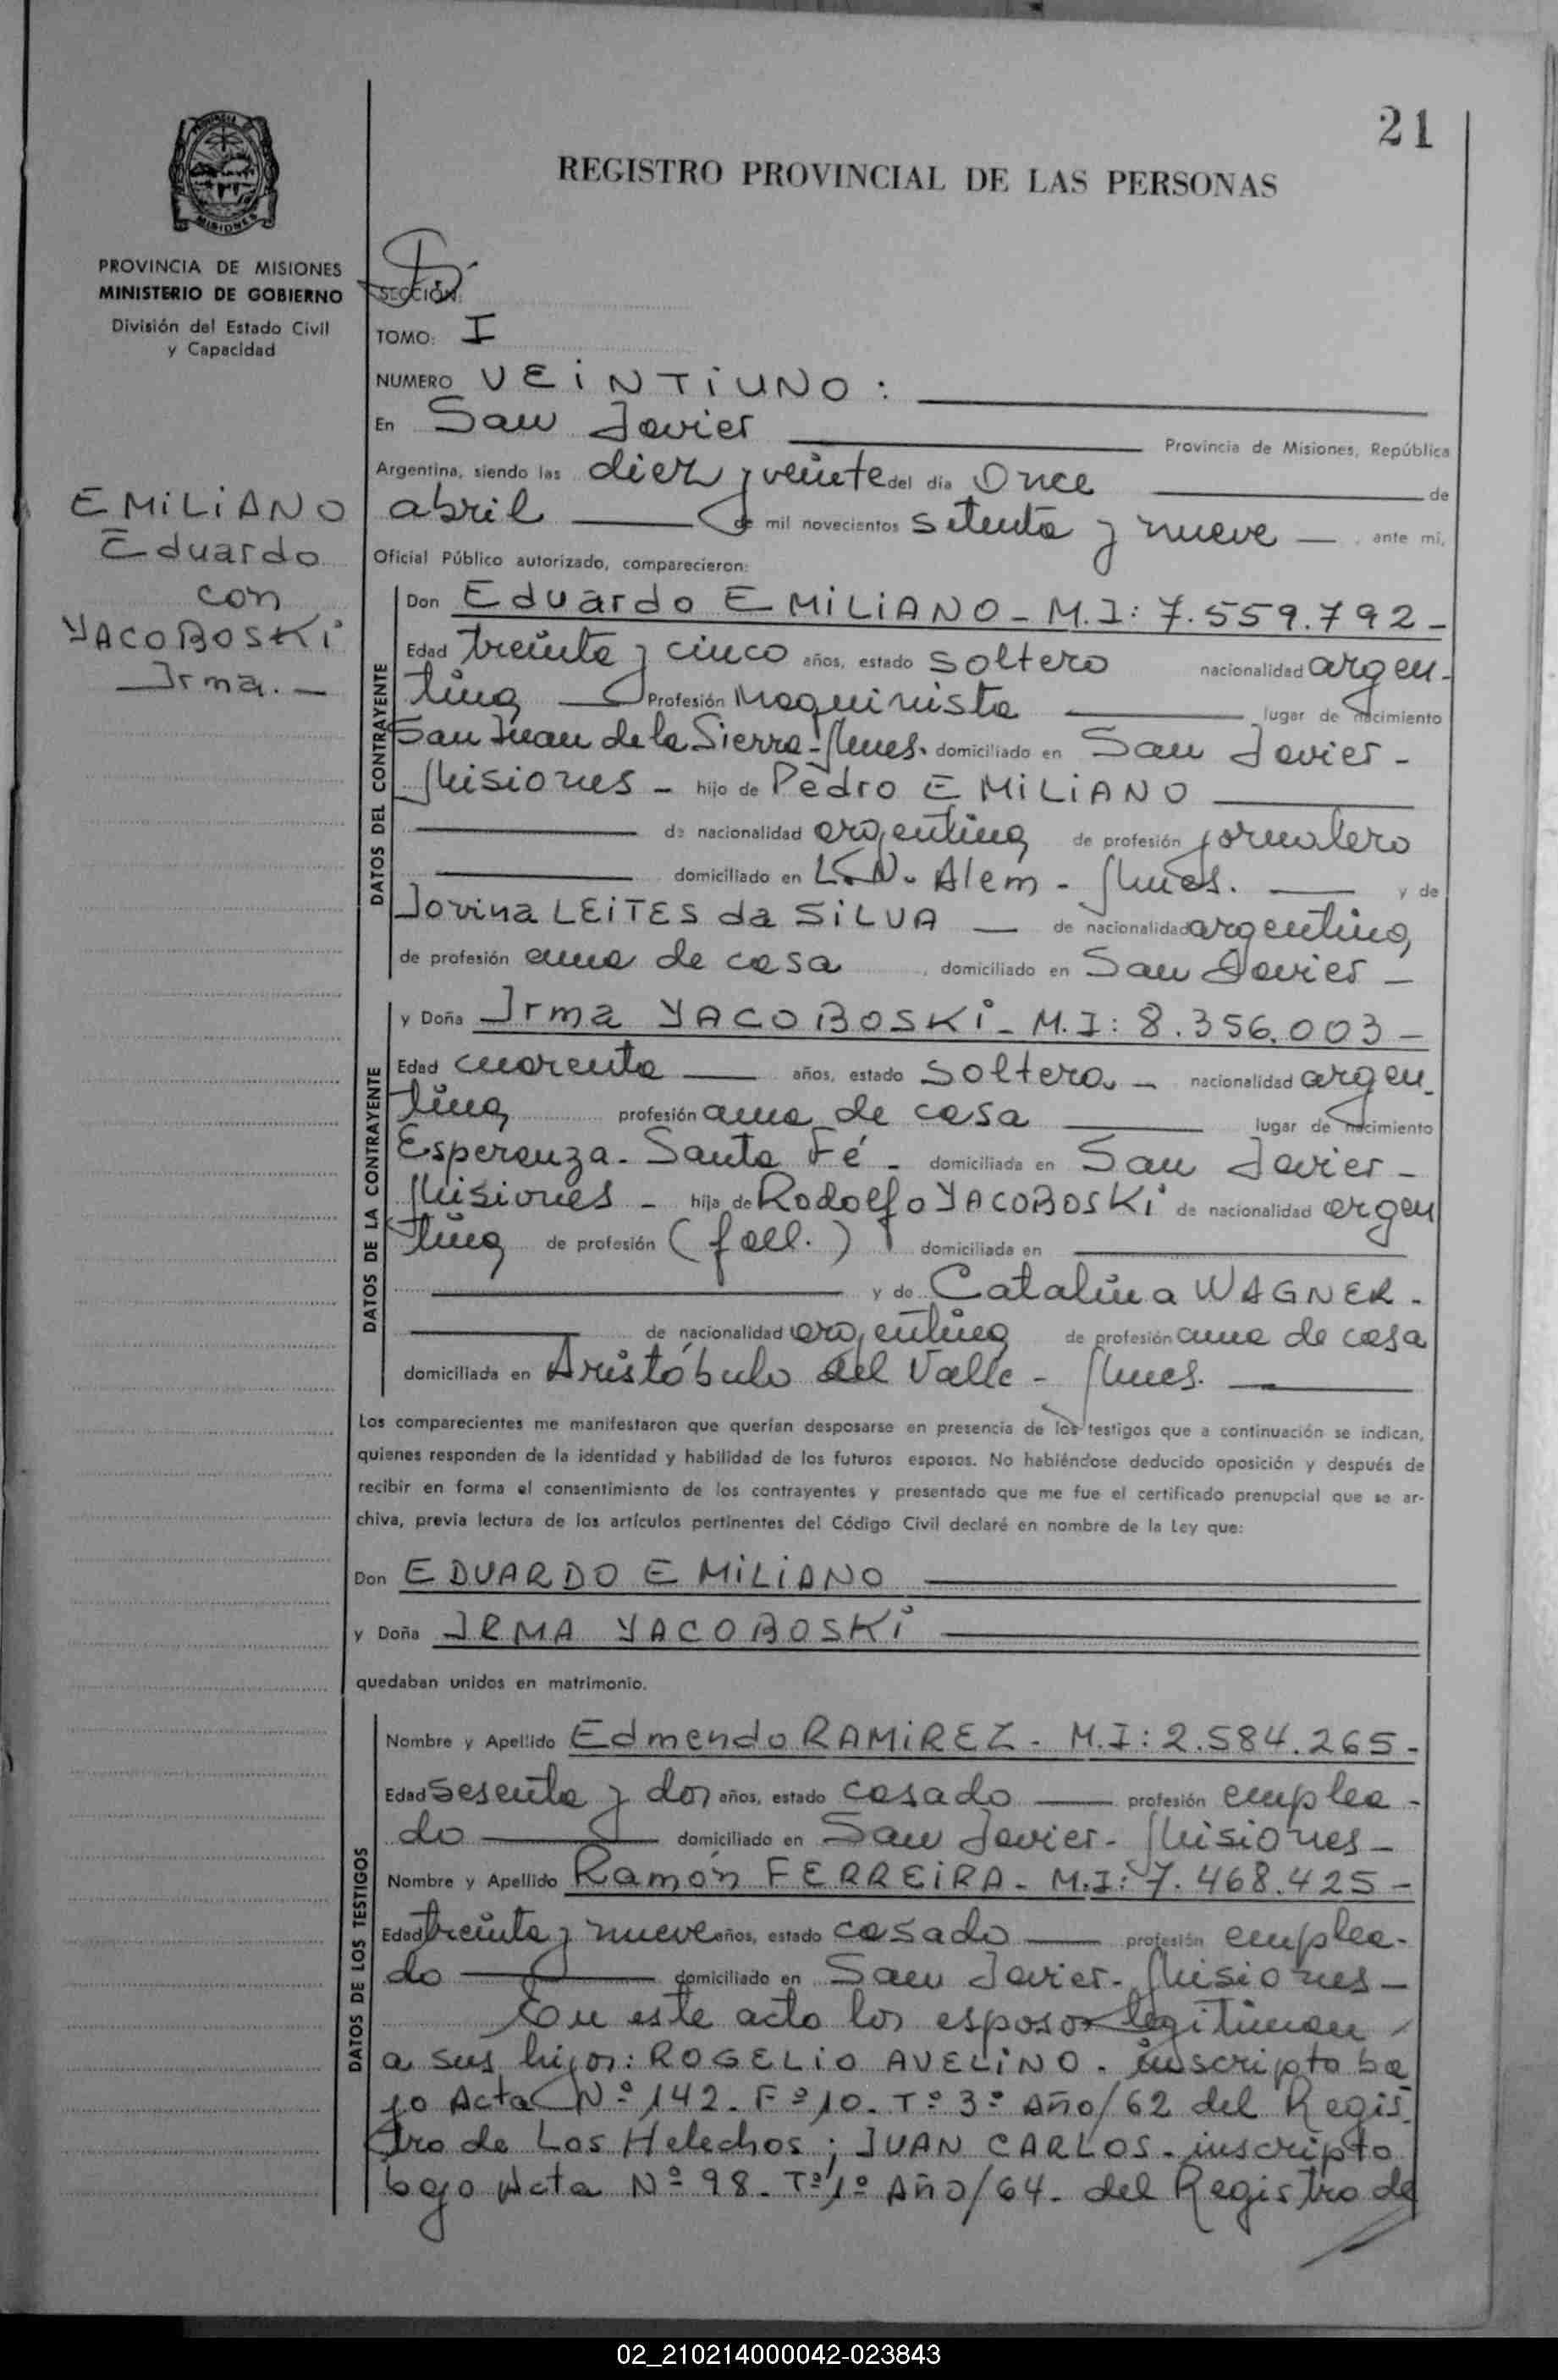 21
REGISTRO PROVINCIAL DE LAS PERSONAS
MISIONES
PROVINCIA DE MISIONES
MINISTERIO DE GOBIERNO
División del Estado Civil
y Capacidad
EMILIANO
Eduardo
con
YACOBOSKI
Irma.-
SECCION:
TOMO: I
NUMERO VEINTIUNO:
En San Javier Provincia de Misiones, República
Argentina, siendo las diez y veinte del día Once de
abril de mil novecientos setenta y nueve — , ante mí,
Oficial Público autorizado, comparecieron:
DATOS DEL CONTRAYENTE
Don Eduardo EMILIANO - M.I: 7.559.792 -
Edad treinta y cinco años, estado soltero nacionalidad argen-
tina — Profesión Maquinista lugar de nacimiento
San Juan de la Sierra - Mnes. domiciliado en San Javier -
Misiones - hijo de Pedro EMILIANO
de nacionalidad argentina de profesión jornalero
domiciliado en L.N. Alem - Mnes. — y de
Jovina LEITES da SILVA — de nacionalidad argentina,
de profesión ama de casa , domiciliado en San Javier -
DATOS DE LA CONTRAYENTE
y Doña Irma YACOBOSKI - M.I: 8.356.003 -
Edad cuarenta — años, estado soltera - nacionalidad argen-
tina profesión ama de casa lugar de nacimiento
Esperanza - Santa Fé - domiciliada en San Javier -
Misiones - hija de Rodolfo YACOBOSKI de nacionalidad argen
tina de profesión (fall.) domiciliada en
y de Catalina WAGNER -
de nacionalidad argentina de profesión ama de casa
domiciliada en Aristóbulo del Valle - Mnes.
Los comparecientes me manifestaron que querían desposarse en presencia de los testigos que a continuación se indican,
quienes responden de la identidad y habilidad de los futuros esposos. No habiéndose deducido oposición y después de
recibir en forma el consentimiento de los contrayentes y presentado que me fue el certificado prenupcial que se ar-
chiva, previa lectura de los artículos pertinentes del Código Civil declaré en nombre de la Ley que:
Don EDUARDO EMILIANO
y Doña IRMA YACOBOSKI
quedaban unidos en matrimonio.
DATOS DE LOS TESTIGOS
Nombre y Apellido Edmendo RAMIREZ - M.I: 2.584.265 -
Edad sesenta y dos años, estado casado — profesión emplea-
do domiciliado en San Javier - Misiones -
Nombre y Apellido Ramón FERREIRA - M.I: 7.468.425 -
Edad treinta y nueve años, estado casado — profesión emplea-
do domiciliado en San Javier - Misiones -
En este acto los esposos legitiman
a sus hijos: ROGELIO AVELINO - inscripto ba
jo Acta Nº 142 - Fº 10 - Tº 3º Año/62 del Regis-
tro de Los Helechos; JUAN CARLOS - inscripto
bajo Acta Nº 98 - Tº 1º Año/64 - del Registro de
02_210214000042-023843